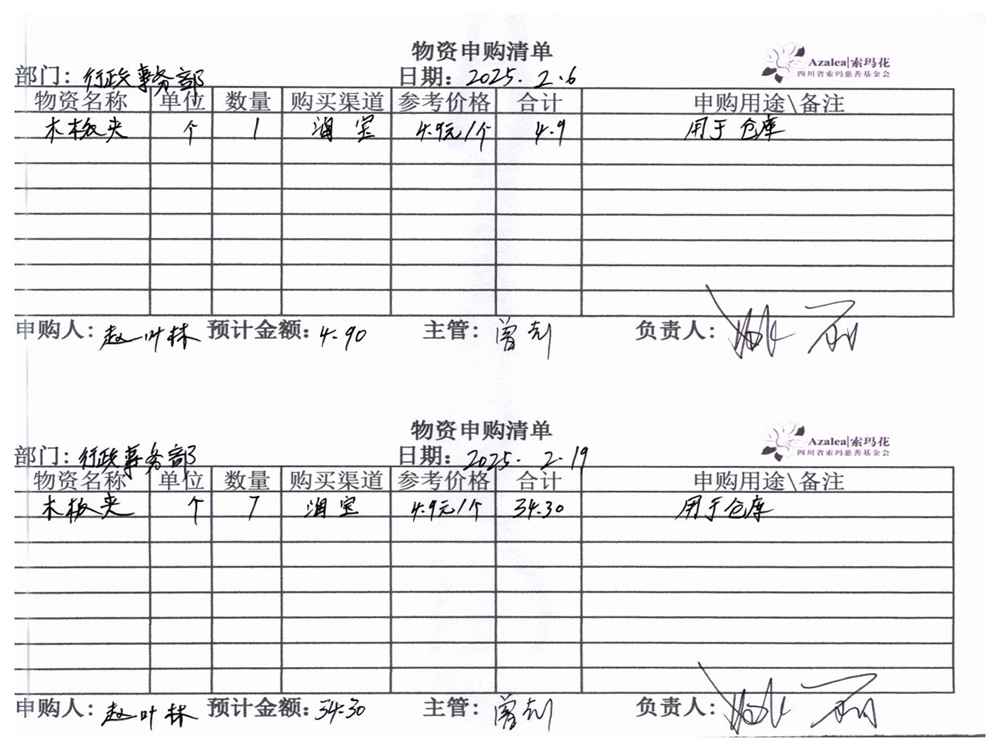 物资申购清单
Azalea|索玛花
四川省索玛慈善基金会
部门：行政事务部 日期：2025.2.6
物资名称 单位 数量 购买渠道 参考价格 合计 申购用途\备注
木板夹 个 1 淘宝 4.9元/个 4.9 用于仓库
申购人：赵叶林 预计金额：4.90 主管：曾刻 负责人：
物资申购清单
Azalea|索玛花
四川省索玛慈善基金会
部门：行政事务部 日期：2025.2.19
物资名称 单位 数量 购买渠道 参考价格 合计 申购用途\备注
木板夹 个 7 淘宝 4.9元/个 34.30 用于仓库
申购人：赵叶林 预计金额：34.30 主管：曾刻 负责人：